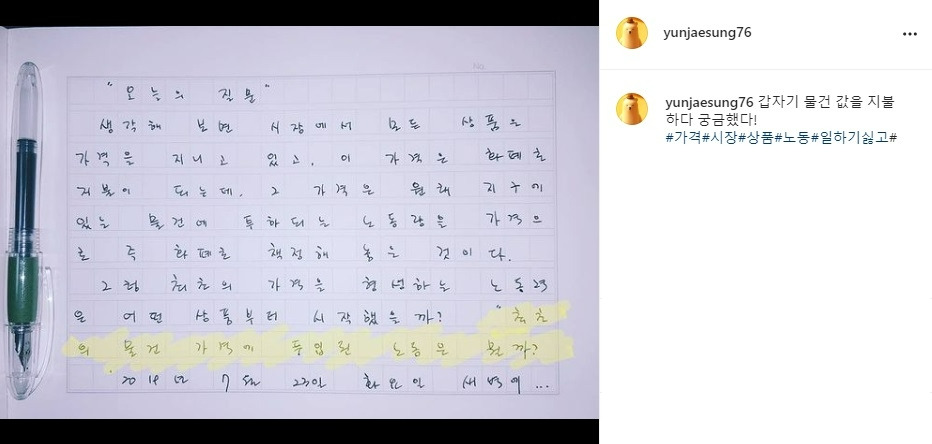 No.
"오늘의 질문"
생각해 보면 시장에서 모든 상품은
가격을 지니고 있고, 이 가격은 화폐로
지불이 되는데, 그 가격은 원래 지구에
있는 물건에 투하되는 노동량을 가격으
로 즉 화폐로 책정해 놓은 것이다.
그럼 최초의 가격을 형성하는 노동력
은 어떤 상품부터 시작했을까? "최초
의 물건 가격에 투입된 노동은 뭔까?
2019년 7월 23일 화요일 새벽에 ...
yunjaesung76
yunjaesung76 갑자기 물건 값을 지불
하다 궁금했다!
#가격#시장#상품#노동#일하기싫고#